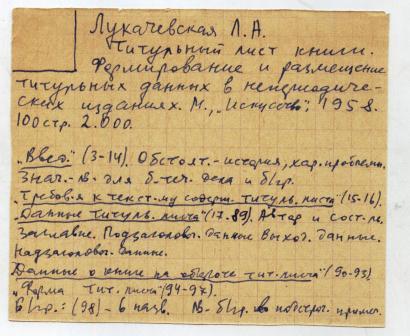 Лукачевская Л.А.
Титульный лист книги.
Формирование и размещение
титульных данных в непериодиче-
ских изданиях. М., „Искусство", 1958.
100 стр. 2.000.
„Введ." (3-14). Обстоят.- история, хар. проблемы.
Знач.- для б-теч. дела и б/гр.
„Требов-я к текст-му содерж. титуль. листа" (15-16).
„Данные титуль. листа" (17-89). Автор и сост-ль.
Заглавие. Подзаголов. данные. Выход. данные.
Надзаголов. данные.
Данные о книге на обороте тит. листа" (90-93).
„Форма тит. листа" (94-97).
Б/гр.: (98) - 6 назв. б/гр. в подстроч. примеч.